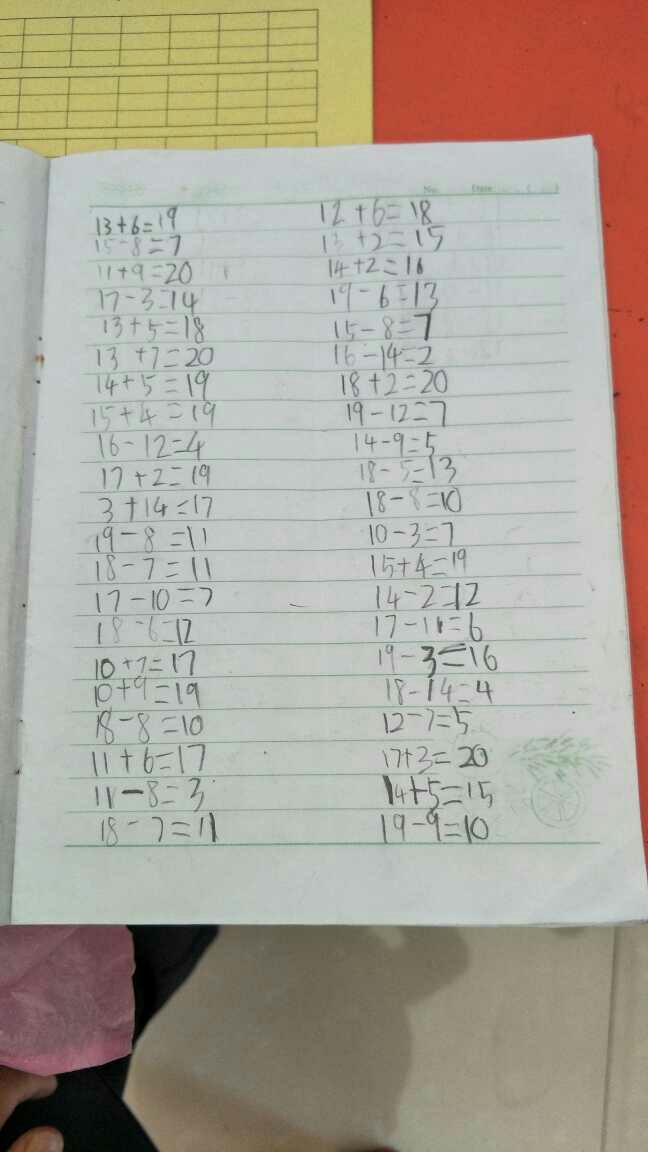 No. Date ( )
13+6=19
15-8=7
11+9=20
17-3=14
13+5=18
13+7=20
14+5=19
15+4=19
16-12=4
17+2=19
3+14=17
19-8=11
18-7=11
17-10=7
18-6=12
10+7=17
10+9=19
18-8=10
11+6=17
11-8=3
18-7=11
12+6=18
13+2=15
14+2=16
19-6=13
15-8=7
16-14=2
18+2=20
19-12=7
14-9=5
18-5=13
18-8=10
10-3=7
15+4=19
14-2=12
17-11=6
19-3=16
18-14=4
12-7=5
17+3=20
14+5=15
19-9=10